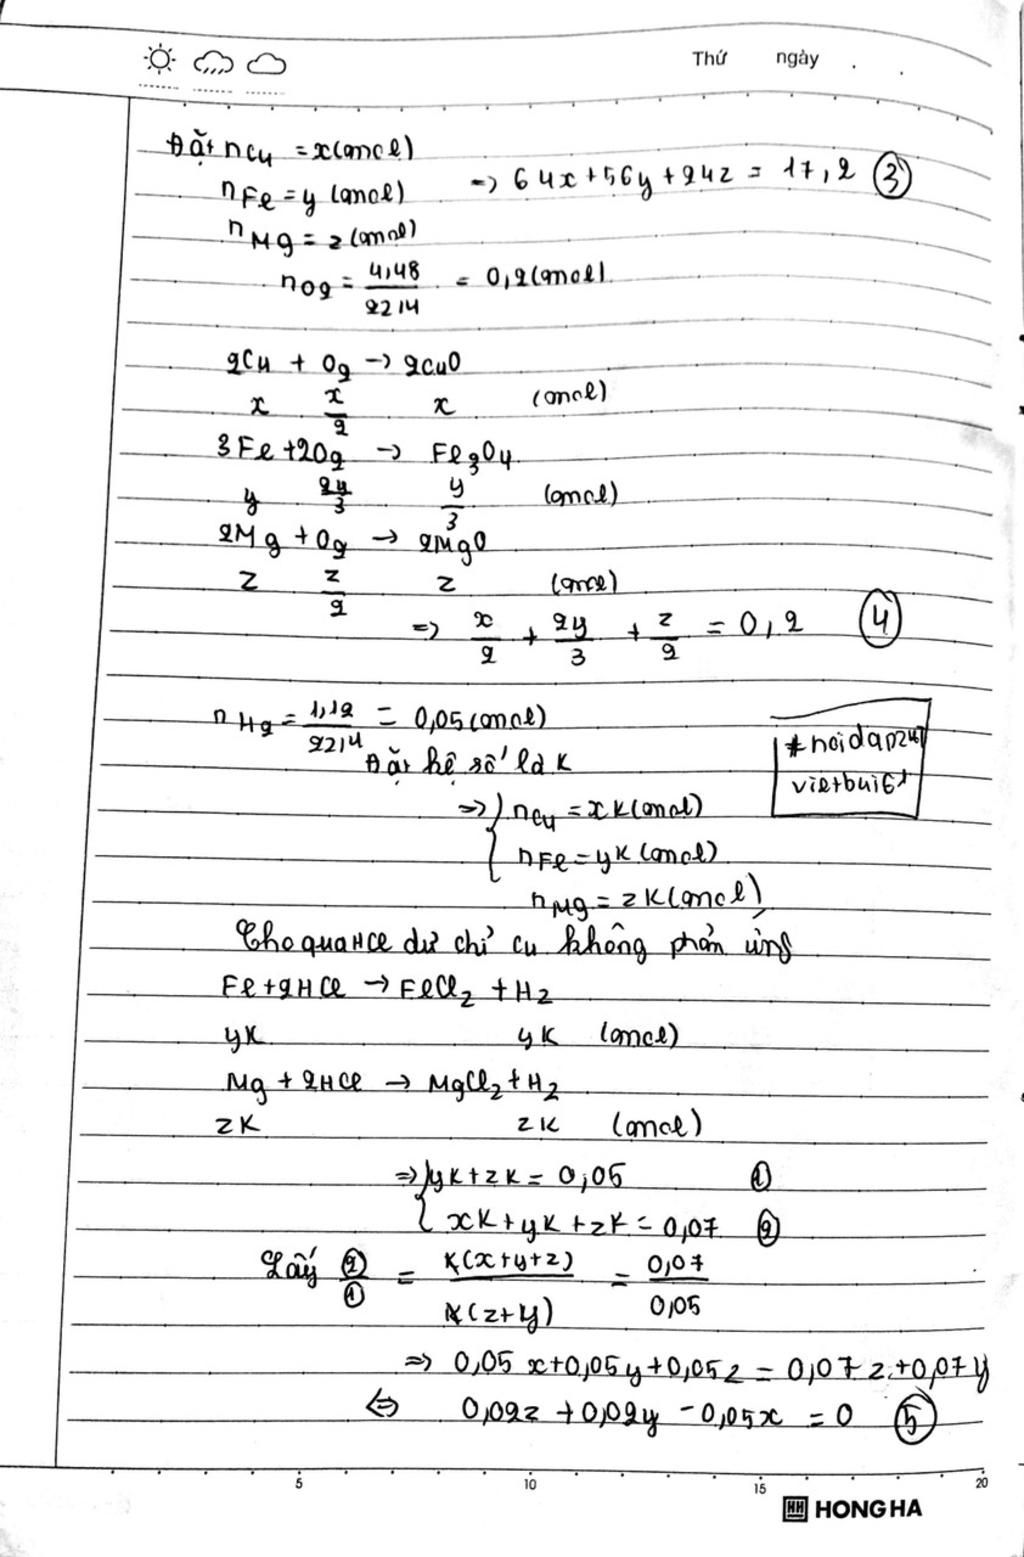 Thứ ngày . .
Đặt nCu = x(mol)
nFe = y (mol) => 64x+56y+24z = 17,2 (3)
nMg = z (mol)
nO2 = 4,48/22,4 = 0,2 (mol)
2Cu + O2 -> 2CuO
x x/2 x (mol)
3Fe + 2O2 -> Fe3O4
y 2y/3 y/3 (mol)
2Mg + O2 -> 2MgO
z z/2 z (mol)
=> x/2 + 2y/3 + z/2 = 0,2 (4)
nH2 = 1,12/22,4 = 0,05 (mol)
#hoidap247
vietbui61
Đặt hệ số là K
=> { nCu = xK (mol)
nFe = yK (mol)
nMg = zK (mol)
Cho qua HCl dư chỉ Cu không phản ứng
Fe + 2HCl -> FeCl2 + H2
yK yK (mol)
Mg + 2HCl -> MgCl2 + H2
zK zK (mol)
=> { yK + zK = 0,05 (1)
xK + yK + zK = 0,07 (2)
Lấy (2)/(1) = K(x+y+z)/K(z+y) = 0,07/0,05
=> 0,05x + 0,05y + 0,05z = 0,07z + 0,07y
<=> 0,02z + 0,02y - 0,05x = 0 (5)
5 10 15 20
HH HONG HA